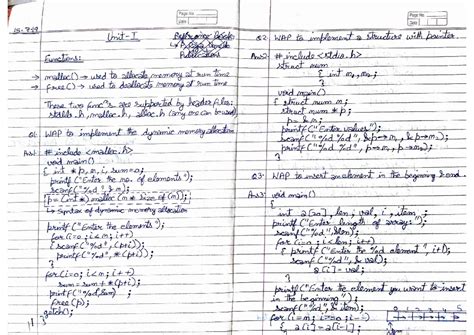 Unit-I
Functions:
→ malloc() → used to allocate memory at run time
→ free() → used to deallocate memory at run time
These two func's are supported by header files:
stdlib.h, malloc.h, alloc.h (any one can be used)
Q1 WAP to implement the dynamic memory allocation
Ans1 # include <malloc.h>
void main()
{ int *p, m, i, sum=0;
printf("Enter the no. of elements");
scanf("%d", &m);
p = (int *) malloc (m * size of (m));
↳ Syntax of dynamic memory allocation
printf("Enter the elements");
for(i=0; i<m; i++)
{ scanf("%d", (p+i));
printf("%d", *(p+i));
}
for(i=0; i<m; i++)
sum = sum + *(p+i);
printf("%d", sum)
free(p);
getch();
}
Q2. WAP to implement a structure with pointer.
Ans2 # include <stdio.h>
struct num
{ int m1, m2;
}
void main()
{ struct num m;
struct num *p;
p = &m;
printf("Enter values");
scanf("%d %d", &p→m1, &p→m2);
printf("%d %d", p→m1, p→m2);
}
Q3. WAP to insert an element in the beginning & end.
Ans3 void main()
{
int a[20], len, val, i, item;
printf("Enter length of array:");
scanf("%d", &len);
for(i=0; i<len; i++)
{ printf("Enter the %d element", i+1);
scanf("%d", &val);
a[i] = val;
}
printf("Enter the element you want to insert
in the beginning");
scanf("%d", &item);
{ a[i] = a[i-1]